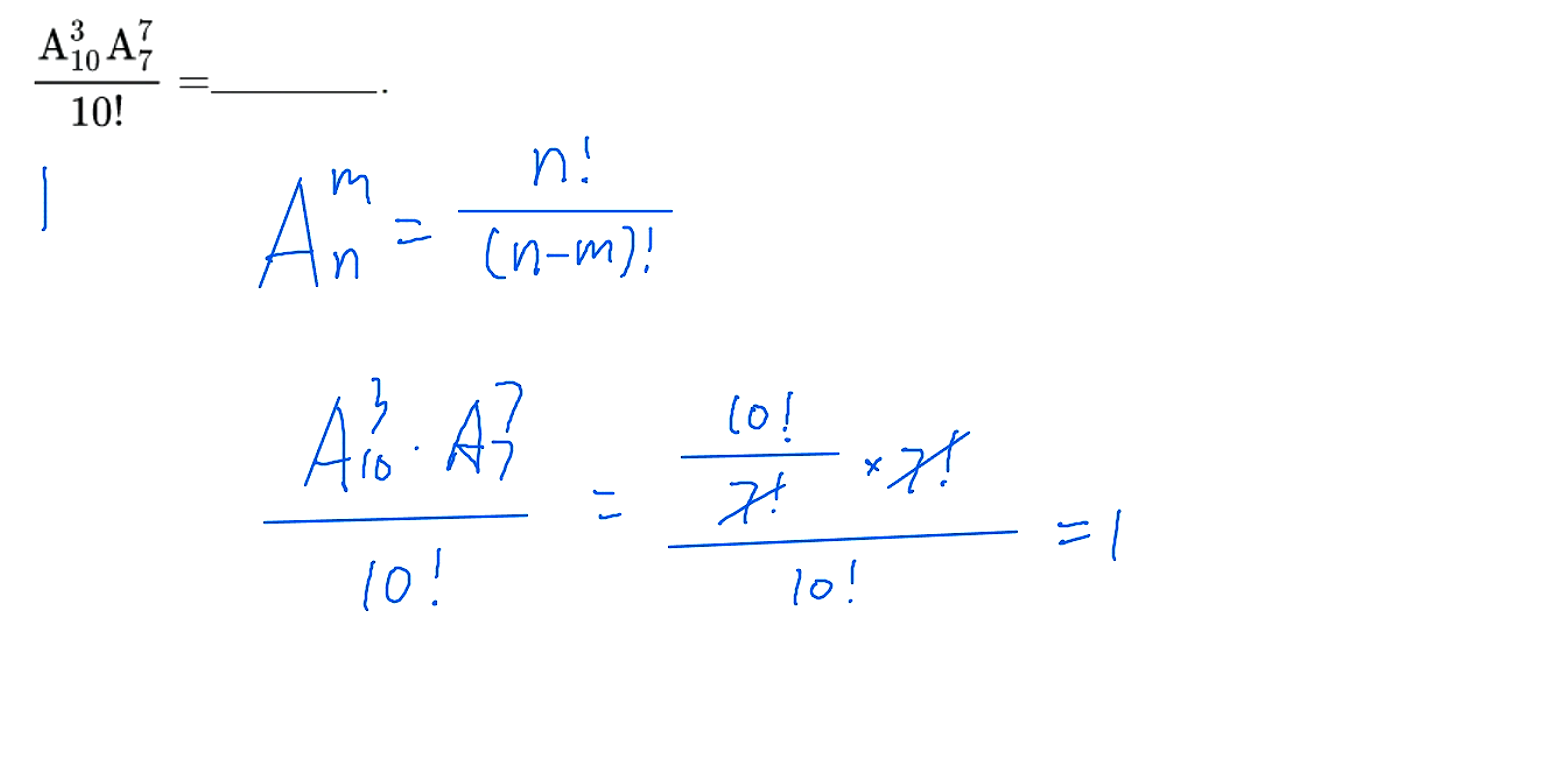 $\frac{A_{10}^{3} A_{7}^{7}}{10!}$ =________.
1
$A_{n}^{m} = \frac{n!}{(n-m)!}$
$\frac{A_{10}^{3} \cdot A_{7}^{7}}{10!} = \frac{\frac{10!}{\cancel{7!}} \times \cancel{7!}}{10!} = 1$